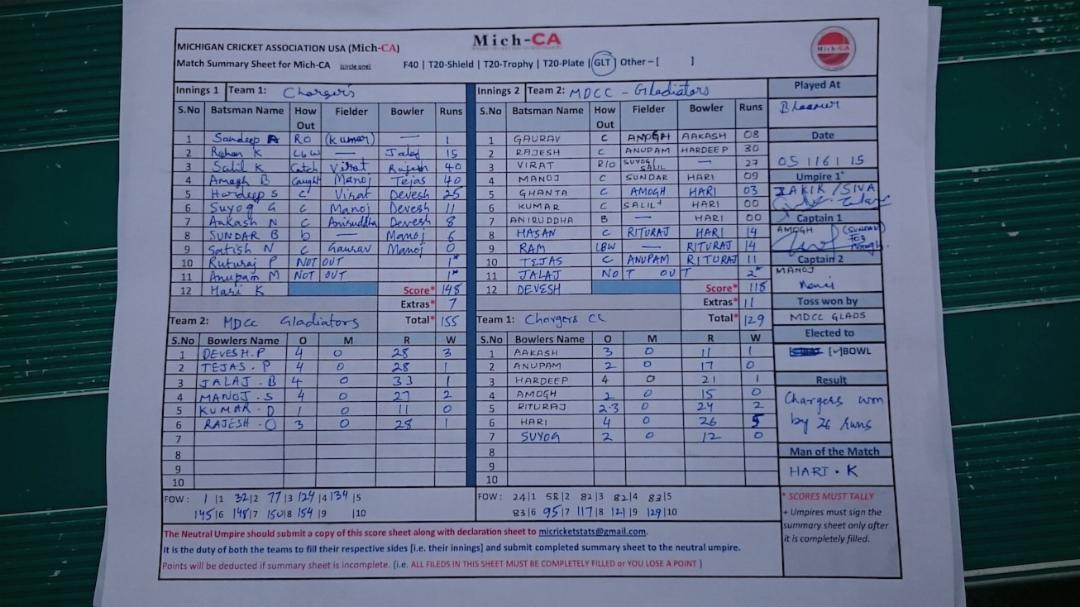 MICHIGAN CRICKET ASSOCIATION USA (Mich-CA)
Mich-CA
Mich-CA
Match Summary Sheet for Mich-CA (circle one) F40 | T20-Shield | T20-Trophy | T20-Plate | GLT | Other – [ ]
Innings 1 Team 1: Chargers
S.No Batsman Name How Out Fielder Bowler Runs
1 Sandeep A RO (Kumar) — 1
2 Rohan K LBW — Jalaj 15
3 Salil K Catch Virat Rajesh 40
4 Amogh B Caught Manoj Tejas 40
5 Hardeep S C Virat Devesh 25
6 Suyog G C Manoj Devesh 11
7 Aakash N C Aniruddha Devesh 8
8 SUNDAR B b — Manoj 6
9 Satish N C Gaurav Manoj 0
10 Rituraj P NOT OUT 1*
11 Anupam M NOT OUT 1*
12 Hari K Score* 148
Extras* 7
Team 2: MDCC Gladiators Total* 155
S.No Bowlers Name O M R W
1 DEVESH.P 4 0 28 3
2 TEJAS.P 4 0 28 1
3 JALAJ.B 4 0 33 1
4 MANOJ.S 4 0 27 2
5 KUMAR.D 1 0 11 0
6 RAJESH.O 3 0 28 1
7
8
9
10
FOW: 1|1 32|2 77|3 124|4 134|5
145|6 148|7 150|8 154|9 |10
Innings 2 Team 2: MDCC - Gladiators
S.No Batsman Name How Out Fielder Bowler Runs
1 GAURAV C AMOGH AAKASH 08
2 RAJESH C ANUPAM HARDEEP 30
3 VIRAT R/O SUYOG/SALIL — 27
4 MANOJ C SUNDAR HARI 09
5 GHANTA C AMOGH HARI 03
6 KUMAR C SALIL HARI 00
7 ANIRUDDHA B — HARI 00
8 HASAN C RITURAJ HARI 14
9 RAM LBW — RITURAJ 14
10 TEJAS C ANUPAM RITURAJ 11
11 JALAJ NOT OUT 2*
12 DEVESH Score* 118
Extras* 11
Team 1: Chargers CC Total* 129
S.No Bowlers Name O M R W
1 AAKASH 3 0 11 1
2 ANUPAM 2 0 17 0
3 HARDEEP 4 0 21 1
4 AMOGH 2 0 15 0
5 RITURAJ 2.3 0 24 2
6 HARI 4 0 26 5
7 SUYOG 2 0 12 0
8
9
10
FOW: 24|1 58|2 82|3 82|4 83|5
83|6 95|7 117|8 121|9 129|10
Played At
Date
05/16/15
Umpire 1*
ZAKIR / SIVA
Captain 1
AMOGH (Sundar for Amogh)
Captain 2
MANOJ
Manoj
Toss won by
MDCC GLADS
Elected to
[✓]BOWL
Result
Chargers won
by 26 runs
Man of the Match
HARI . K
* SCORES MUST TALLY
+ Umpires must sign the
summary sheet only after
it is completely filled.
The Neutral Umpire should submit a copy of this score sheet along with declaration sheet to micricketstats@gmail.com.
It is the duty of both the teams to fill their respective sides [i.e. their innings] and submit completed summary sheet to the neutral umpire.
Points will be deducted if summary sheet is incomplete. [i.e. ALL FILEDS IN THIS SHEET MUST BE COMPLETELY FILLED or YOU LOSE A POINT ]